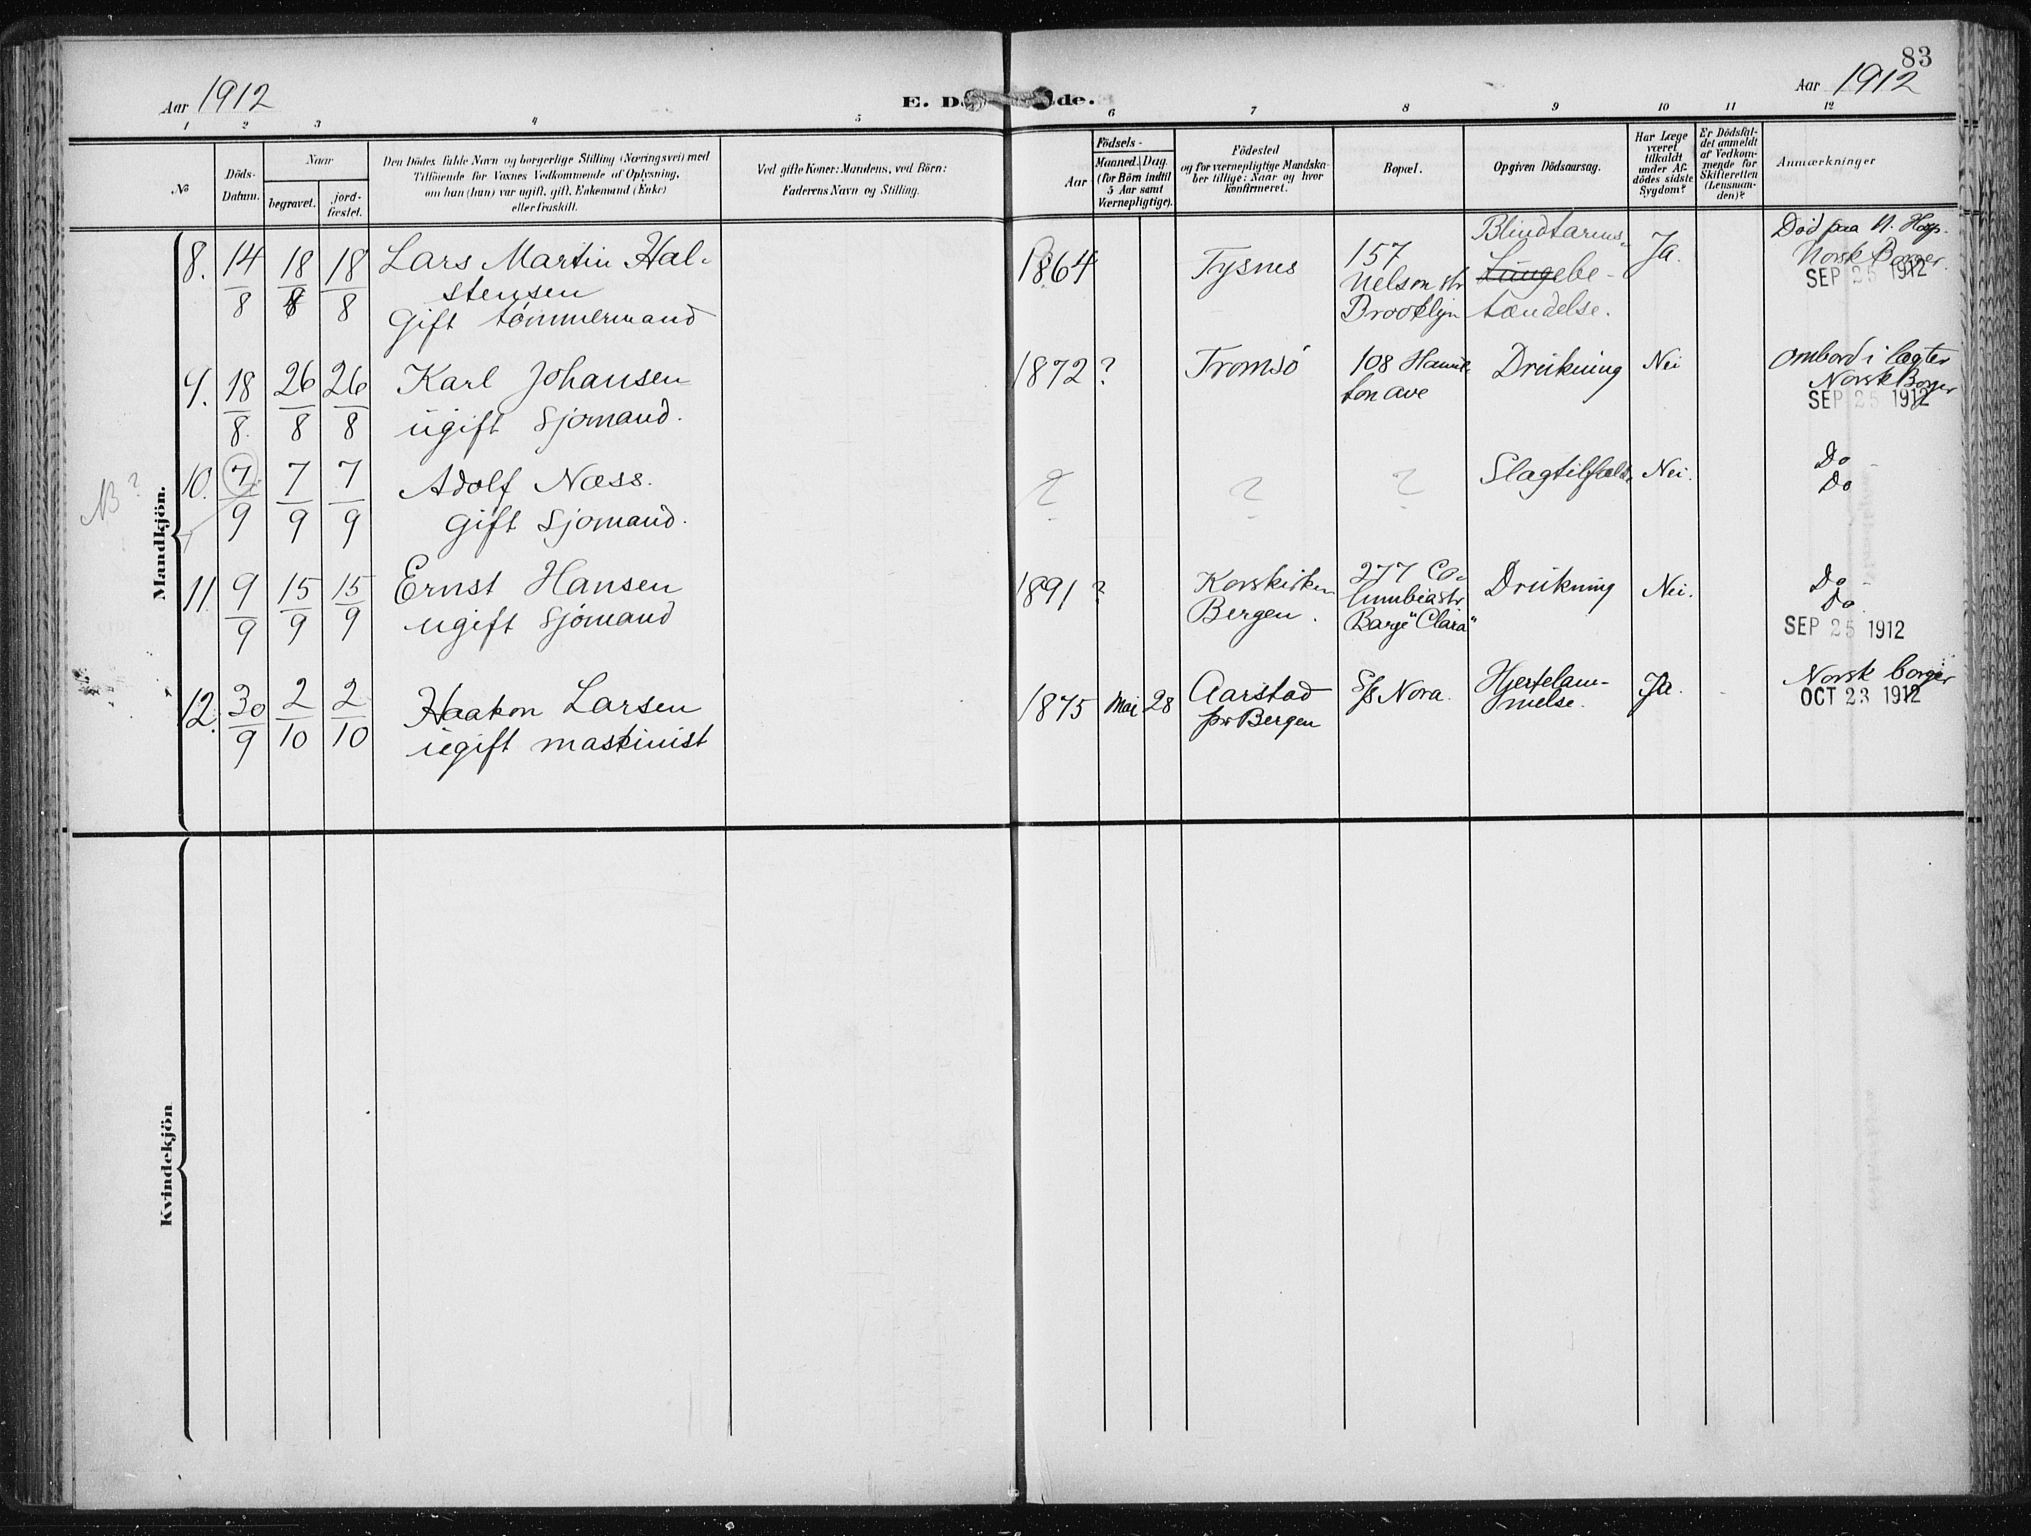 83
Aar 1912
E. D de.
Aar 1912
1 2 3 4 5 6 7 8 9 10 11 12
No
Döds-
Datum.
Naar
begravet.
jord-
fæstet.
Den Dödes fulde Navn og borgerlige Stilling (Næringsvei) med
Tilföiende for Voxnes Vedkommende af Oplysning,
om hun (han) var ugift, gift, Enkemand (Enke)
eller fraskilt.
Ved gifte Koner: Mandens, ved Börn:
Faderens Navn og Stilling.
Födsels-
Aar
Maaned. Dag.
(for Börn indtil
5 Aar samt
Værnepligtige).
Födested
og for værnepligtige Mandska-
ber tillige: Naar og hvor
konfirmeret.
Bopæl.
Opgiven Dödsaarsag.
Har Læge
været
tilkaldt
under Af-
dödes sidste
Sygdom?
Er Dödsfal-
det anmeldt
af Vedkom-
mende for
Skifteretten
(Lensman-
den)?
Anmærkninger
Mandkjön.
8. 14/8 18/8 18/8 Lars Martin Hal-
stensen
Gift tømmermand
1864 Tysnes
157
Nelson str
Brooklyn
Blindtarms-
Lungebe-
tændelse.
Ja.
Död paa N. Hosp.
Norsk Borger.
SEP 25 1912
9. 18/8. 26/8 26/8 Karl Johansen
ugift Sjømand.
1872 ? Tromsö
108 Hamil-
ton ave
Drukning Nei
Ombord i lægter
Norsk Borger
SEP 25 1912
NB ?
10. 7/9 7/9 7/9 Adolf Næss.
gift Sjømand.
? ? ?
Slagtilfælde Nei.
Do -
Do
11. 9/9 15/9 15/9 Ernst Hansen
ugift Sjömand
1891 ? Korskirken
Bergen.
277 Co-
lumbia str
Barge "Clara"
Drukning Nei.
Do -
Do.
SEP 25 1912
12. 30/9 2/10 2/10 Haakon Larsen
ugift maskinist
1875 Mai 28 Aarstad
pr Bergen
S/S Nora.
Hjertelam-
melse.
Ja.
Norsk borger
OCT 23 1912
Kvindekjön